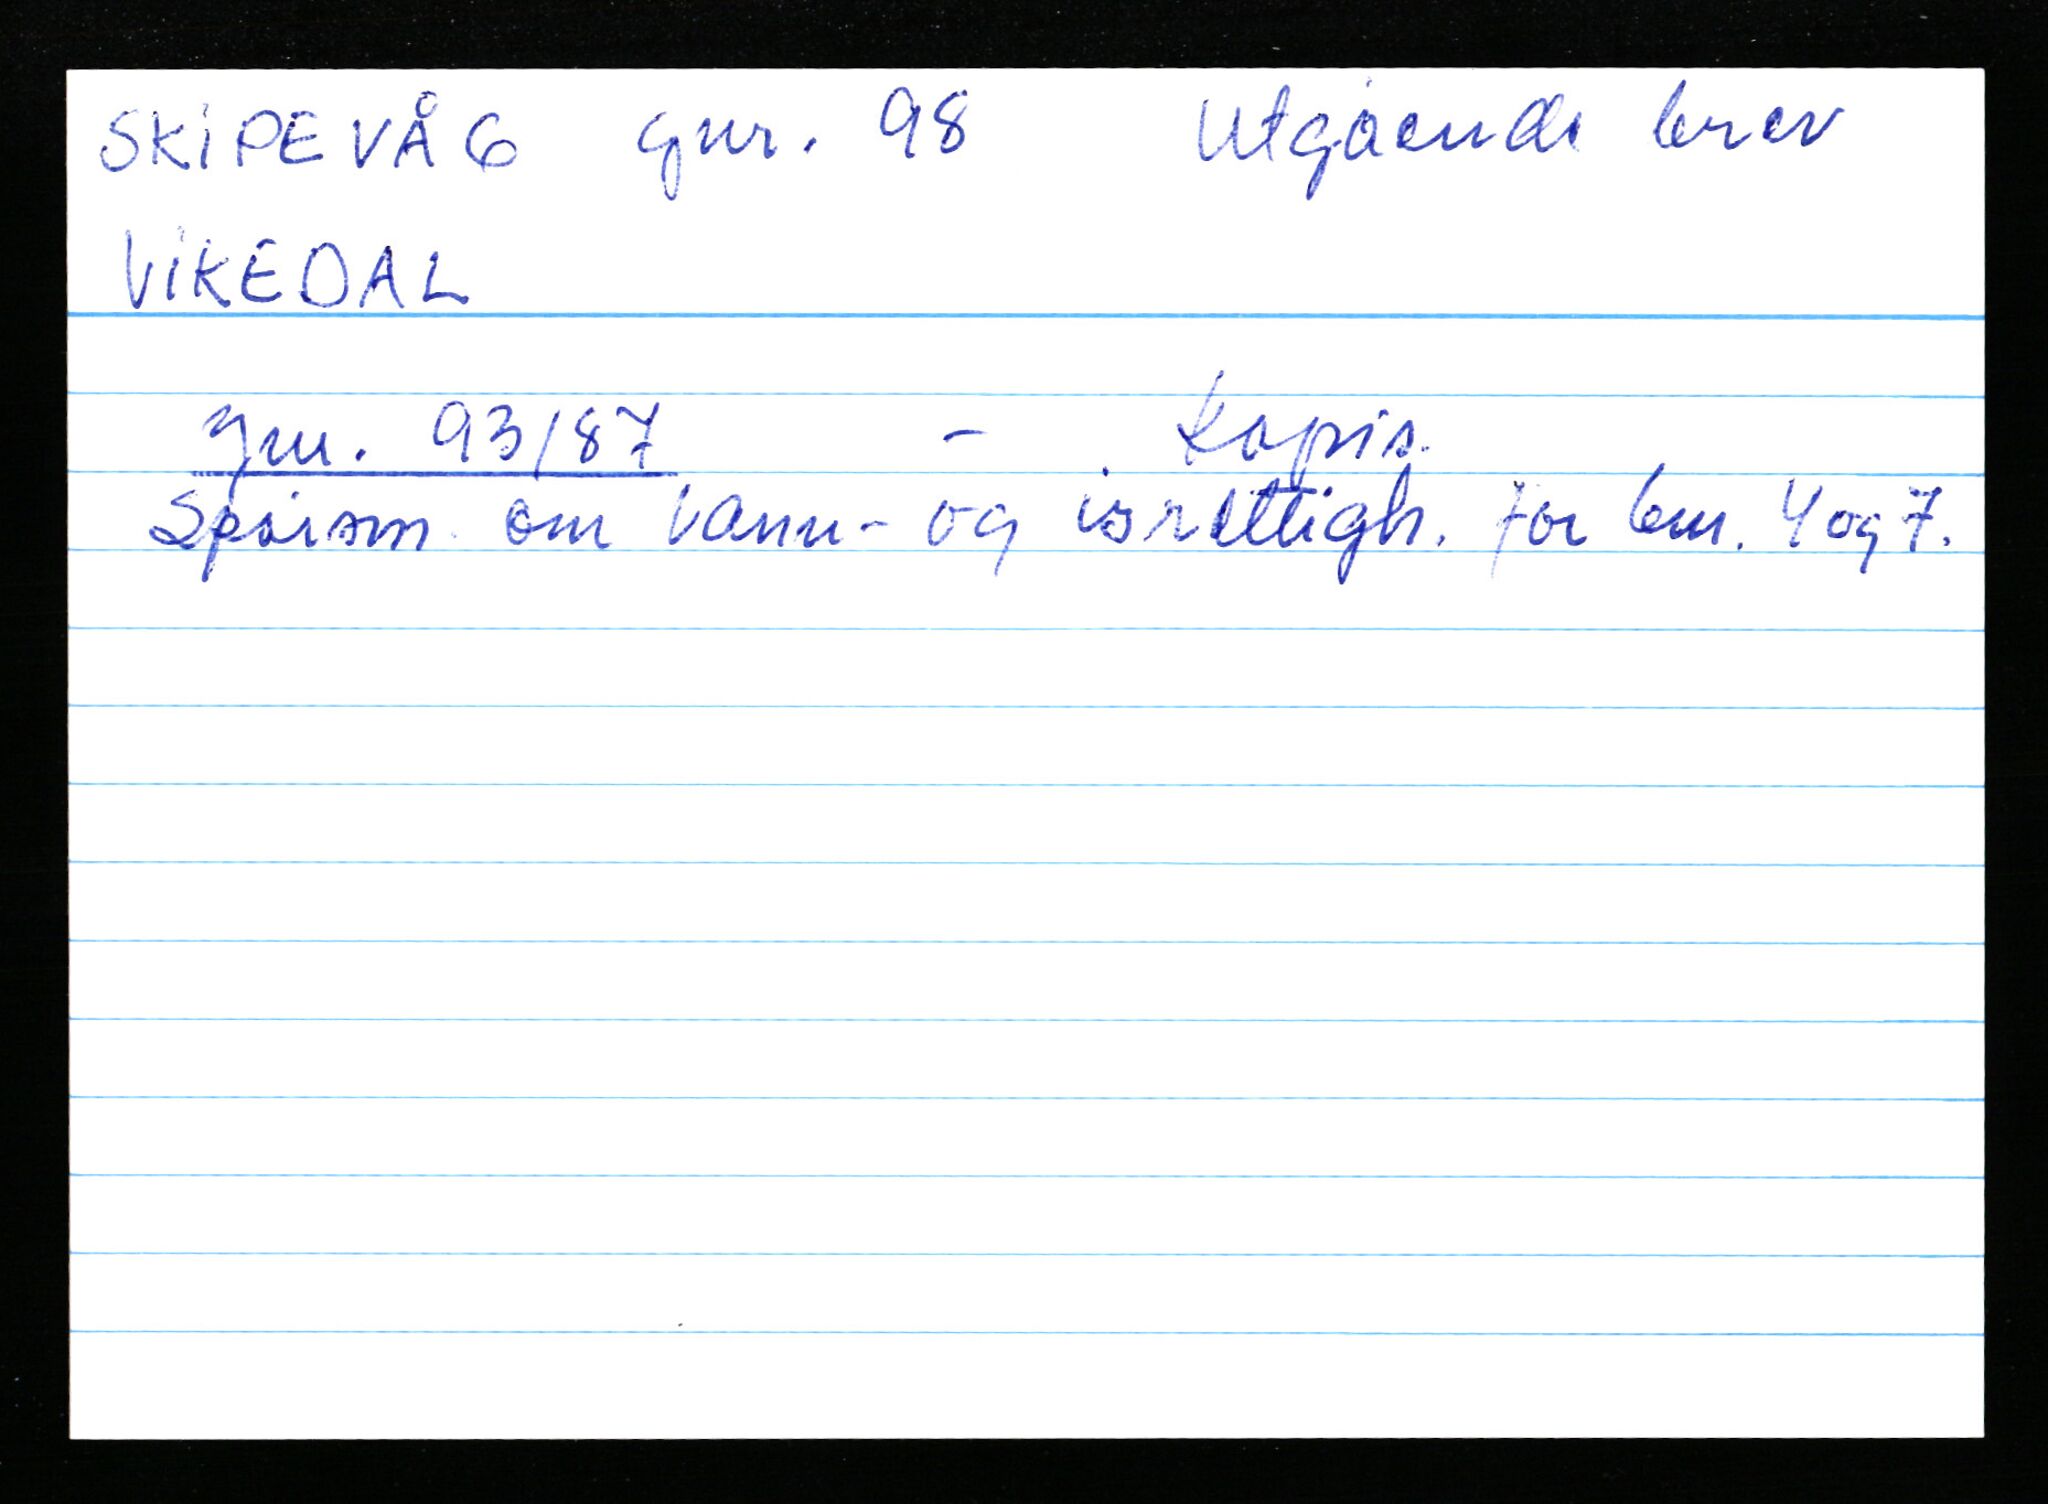 SKIPEVÅG gnr. 98 Utgående brev
VIKEDAL
Jnr. 93/87 - Kopis.
Spørsm. om vann- og isrettigh. for bnr. 4 og 7.